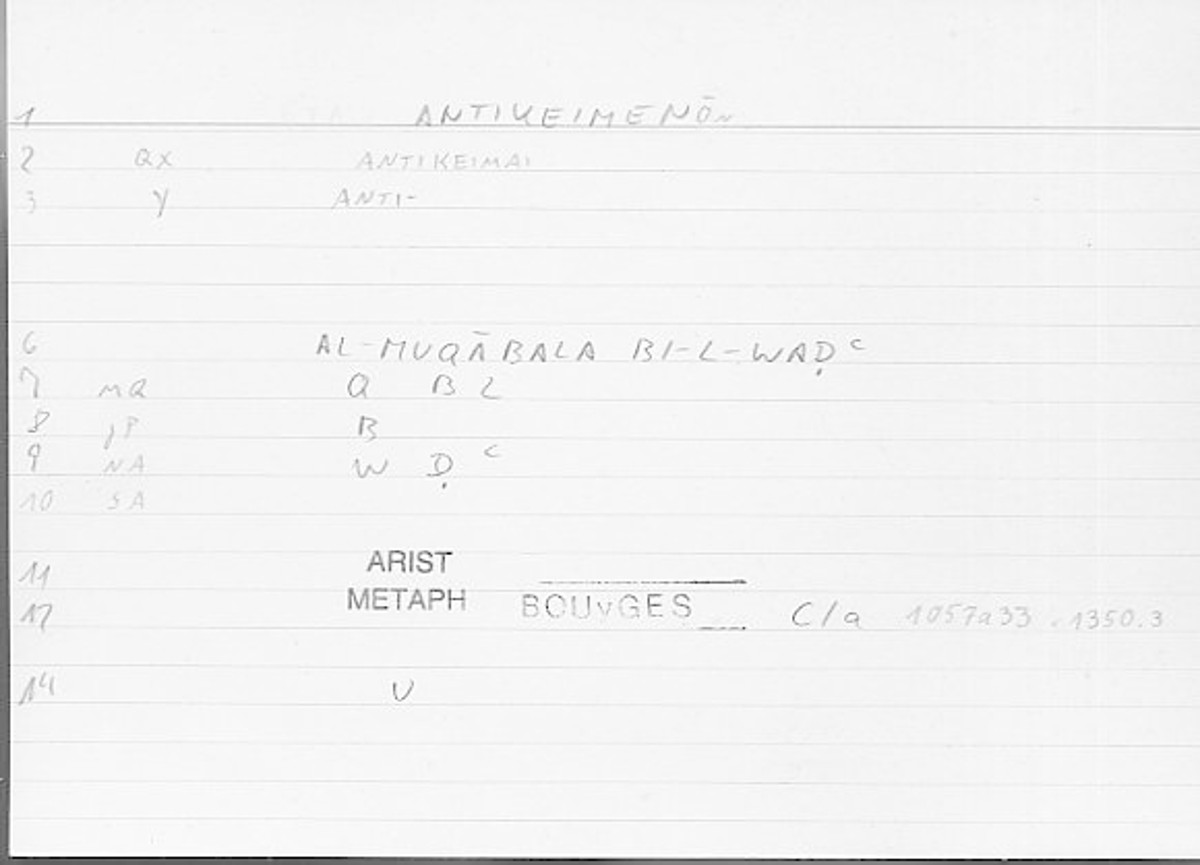 1 ANTIKEIMENŌN
2 QX ANTIKEIMAI
3 Y ANTI-
6 AL-MUQĀBALA BI-L-WAḌᶜ
7 MQ Q B L
8 JP B
9 NA W Ḍ ᶜ
10 SA
11 ARIST
12 METAPH BOUYGES C/a 1057a33 . 1350.3
14 V